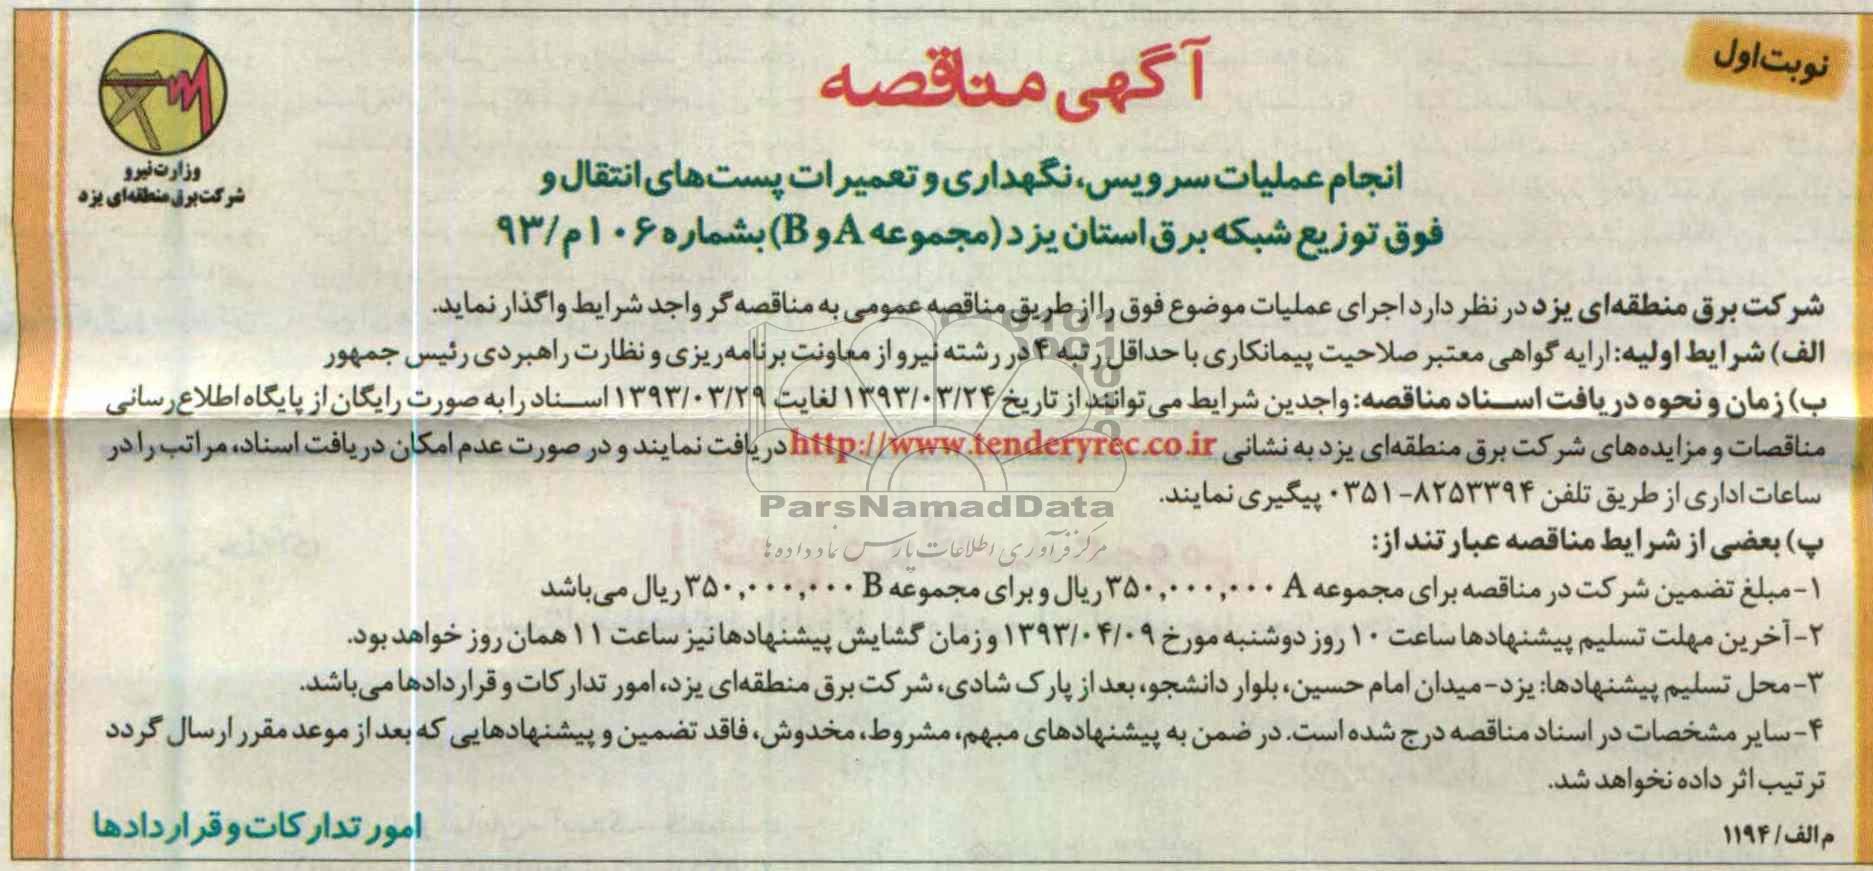 نوبت اول
آگهی مناقصه
وزارت نیرو
شرکت برق منطقه‌ای یزد
انجام عملیات سرویس، نگهداری و تعمیرات پست‌های انتقال و
فوق توزیع شبکه برق استان یزد (مجموعه A و B) بشماره ۱۰۶م/۹۳
شرکت برق منطقه‌ای یزد در نظر دارد اجرای عملیات موضوع فوق را از طریق مناقصه عمومی به مناقصه‌گر واجد شرایط واگذار نماید.
الف) شرایط اولیه: ارایه گواهی معتبر صلاحیت پیمانکاری با حداقل رتبه ۴ در رشته نیرو از معاونت برنامه‌ریزی و نظارت راهبردی رئیس جمهور
ب) زمان و نحوه دریافت اسناد مناقصه: واجدین شرایط می‌توانند از تاریخ ۱۳۹۳/۰۳/۲۴ لغایت ۱۳۹۳/۰۳/۲۹ اسناد را به صورت رایگان از پایگاه اطلاع رسانی
مناقصات و مزایده‌های شرکت برق منطقه‌ای یزد به نشانی http://www.tenderyrec.co.ir دریافت نمایند و در صورت عدم امکان دریافت اسناد، مراتب را در
ساعات اداری از طریق تلفن ۸۲۵۳۳۹۴-۰۳۵۱ پیگیری نمایند.
پ) بعضی از شرایط مناقصه عبارتند از:
۱- مبلغ تضمین شرکت در مناقصه برای مجموعه A ۳۵۰,۰۰۰,۰۰۰ ریال و برای مجموعه B ۳۵۰,۰۰۰,۰۰۰ ریال می‌باشد
۲- آخرین مهلت تسلیم پیشنهادها ساعت ۱۰ روز دوشنبه مورخ ۱۳۹۳/۰۴/۰۹ و زمان گشایش پیشنهادها نیز ساعت ۱۱ همان روز خواهد بود.
۳- محل تسلیم پیشنهادها: یزد- میدان امام حسین، بلوار دانشجو، بعد از پارک شادی، شرکت برق منطقه‌ای یزد، امور تدارکات و قراردادها می‌باشد.
۴- سایر مشخصات در اسناد مناقصه درج شده است. در ضمن به پیشنهادهای مبهم، مشروط، مخدوش، فاقد تضمین و پیشنهادهایی که بعد از موعد مقرر ارسال گردد
ترتیب اثر داده نخواهد شد.
م الف/ ۱۱۹۴
امور تدارکات و قراردادها
ParsNamadData
مرکز فرآوری اطلاعات پارس نماد داده ها